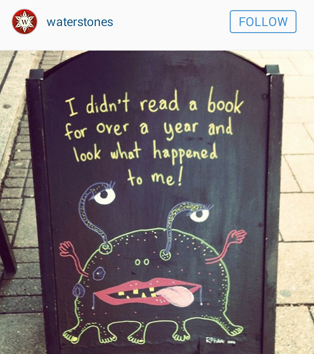 waterstones
FOLLOW
I didn't read a book
for over a year and
look what happened
to me!